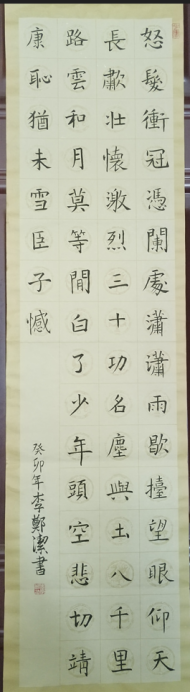 怒髮衝冠憑闌處瀟瀟雨歇擡望眼仰天
長歗壯懷激烈三十功名塵與土八千里
路雲和月莫等閒白了少年頭空悲切靖
康恥猶未雪臣子憾
癸卯年李鄭潔書